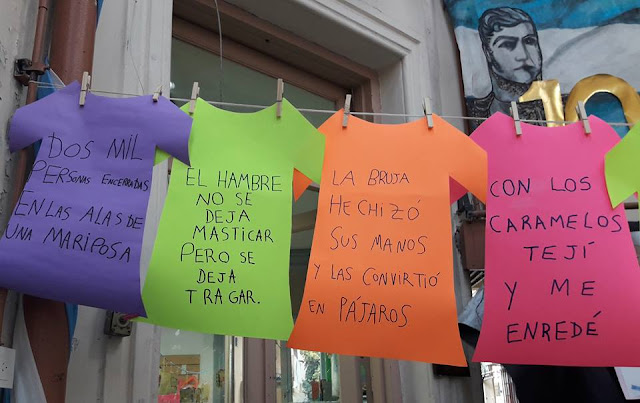 DOS MIL
PERSONAS ENCERRADAS
EN LAS ALAS DE
UNA MARIPOSA
EL HAMBRE
NO SE
DEJA
MASTICAR
PERO SE
DEJA
TRAGAR.
LA BRUJA
HECHIZÓ
SUS MANOS
Y LAS CONVIRTIÓ
EN PÁJAROS
CON LOS
CARAMELOS
TEJÍ
Y ME
ENREDÉ